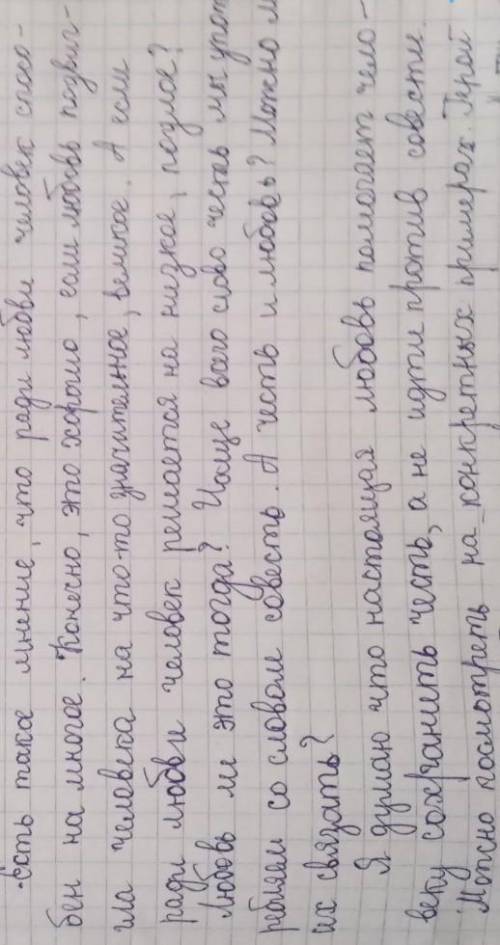 Есть такое мнение, что ради любви человек спосо-
бен на многое. Конечно, это хорошо, если любовь подвиг-
ла человека на что-то значительное, великое. А если
ради любви человек решается на низкое, подлое?
Любовь ли это тогда? Чаще всего слово честь мы упот
ребляем со словом совесть. А честь и любовь? Можно л
их связать?
Я думаю что настоящая любовь помогает чело-
веку сохранить честь, а не идти против совести.
Можно посмотреть на конкретных примерах. Герой